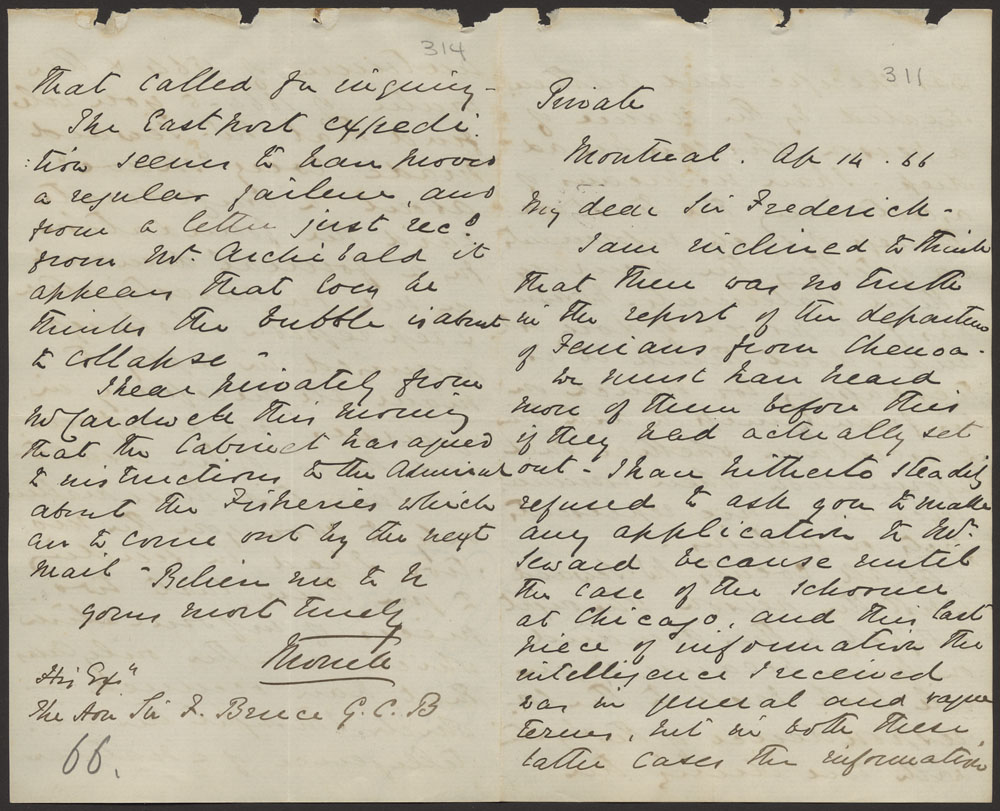 311
Private
Montreal. Ap 14. 66
My dear Sir Frederick -
I am inclined to think
that there was no truth
in the report of the departure
of Fenians from Chenoa -
We must have heard
more of them before this
if they had actually set
out - I have hitherto steadily
refused to ask you to make
any application to Mr.
Seward because until
the case of the Schooner
at Chicago, and this last
piece of information the
intelligence I received
was in general and vague
terms, but in both these
latter cases the information
314
that called for inquiry -
The Eastport expedi:
:tion seems to have proved
a regular failure, and
from a letter just recd.
from Mr. Archibald it
appears that even he
thinks the bubble is about
to collapse -
I hear privately from
Mr Cardwell this morning
that the Cabinet has agreed
to instructions to the Admiral
about the Fisheries which
are to come out by the next
Mail - Believe me to be
yours most truly
Monck
His Exy
The Hon Sir F. Bruce G.C.B
66.